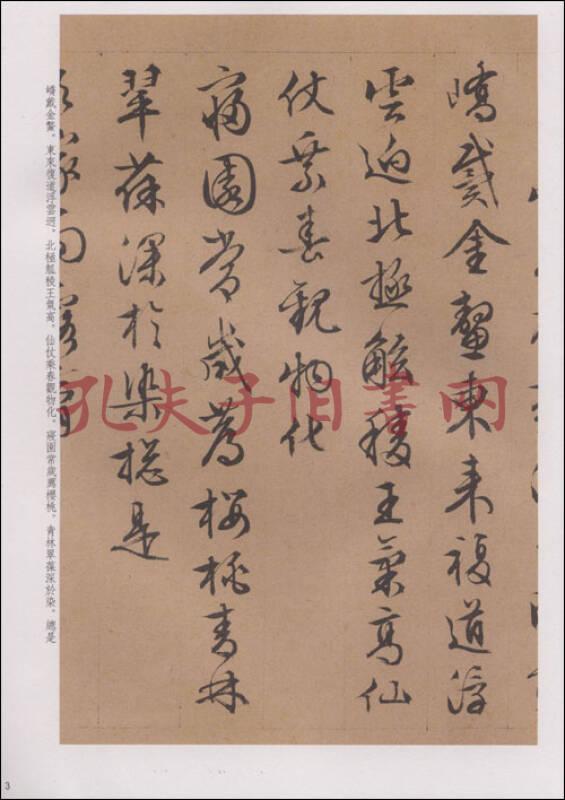 嶠戴金鰲東來複道浮
雲迫北極觚稜王氣高仙
仗乘春觀物化
寢園常歲薦桜桃青林
翠葆深於染總是
嶠戴金鰲。東來復道浮雲迥。北極觚稜王氣高。仙仗乘春觀物化。寢園常歲薦櫻桃。青林翠葆深於染。總是
孔夫子旧书网
3